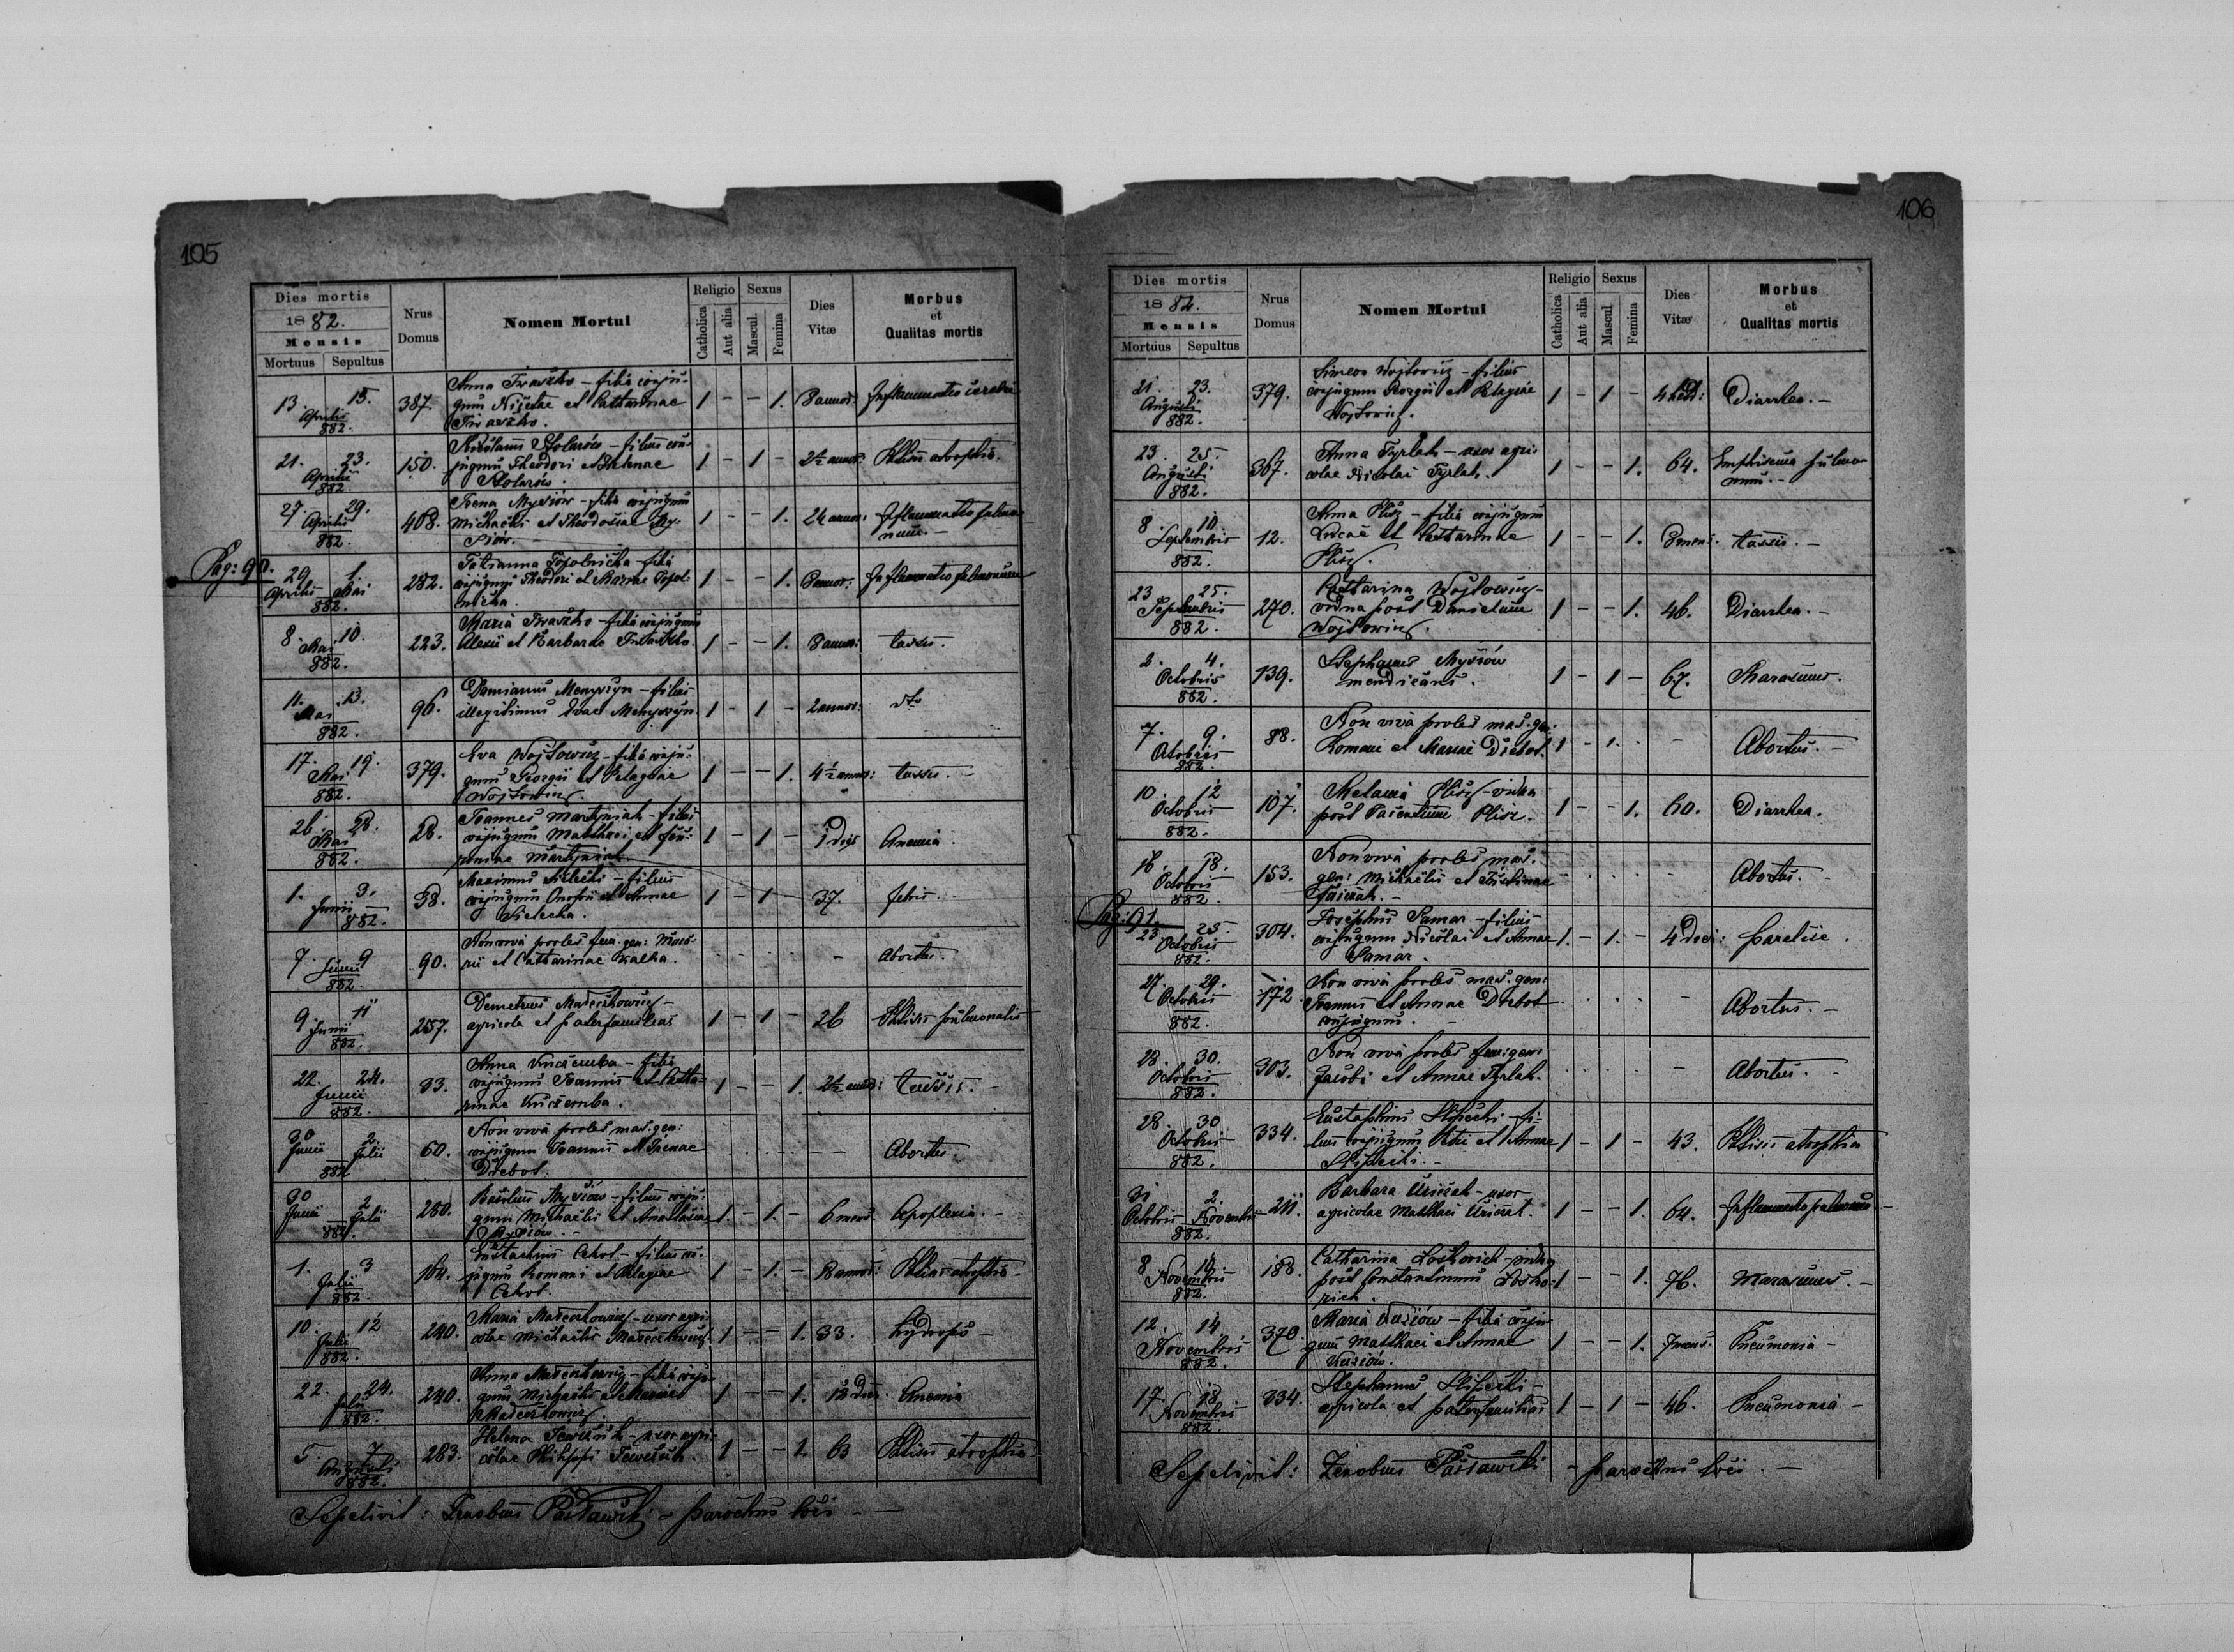 105
Dies mortis
1882.
Mensis
Mortuus Sepultus
Nrus
Domus
Nomen Mortui
Religio
Catholica
Aut alia
Sexus
Mascul
Femina
Dies
Vitæ
Morbus
et
Qualitas mortis
13. 15.
Aprilis
882.
387.
Anna Iwaszko – filia conju-
gum Nicetae et Catharinae
Iwaszko.
1 – – 1. 3 annor: Inflammatio cerebri
21. 23.
Aprilis
882.
150.
Stolarów – filius con-
jugum Theodori et Helenae
Stolarów.
1 – 1 – 2½ annor: Phtisis atrophia.
27. 29.
Aprilis
882.
408.
Irena Mysiów – filia conjugum
Michaelis et Theodosiae My-
siów.
1 – – 1. 24 annor: Inflammatio pulmo-
num. –
Pag: 90.
29 1
Aprilis – Mai
882.
282.
Tatianna Topolnicka – filia
conjugum Theodori et Mariae Topol-
nicka.
1 – – 1. 3 annor: Inflammatio pulmonum
8 10.
Mai
882.
223.
Maria Iwaszko – filia conjugum
Alexii et Barbarae Iwaszko.
1 – – 1. 3 annor: tussis.
11. 13.
Mai
882.
96.
Damianus Menyszyn – filius
illegitimus Evae Menyszyn.
1 – 1 – 2 annor: dto
17. 19.
Mai
882.
379.
Eva Wojtowicz – filia conju-
gum Georgii et Pelagiae
Wojtowicz.
1 – – 1. 4½ annor: tussis. –
26. 28.
Mai
882.
28.
Joannes Martyniak – filius
conjugum Matthaei et
Martyniak.
1 – 1 – 1 dies Anemia.
1. 3.
Junii
882.
38.
Maximus – filius
conjugum Onofrii et Annae
1 – 1 – 37. febris. –
7. 9
Junii
882.
90.
Non viva proles fem. gen:
et Catharinae
– Abortus.
9 11
Junii
882.
257.
Demetrius Maderkowicz –
agricola et paterfamilias
1 – 1 – 26 Phtisis pulmonalis
22. 24.
Junii
882.
83.
Anna – filia
conjugum Joannis et Catha-
rinae
1 – – 1. 2½ annor: tussis. –
30 2.
Junii – Julii
882
60.
Non viva proles mas. gen:
conjugum Joannis et Irenae
Drebot.
– – Abortus.
30 2
Junii – Julii
882.
280.
Basilius Mysiów – filius conju-
gum Michaelis et Anastasiae
Mysiów. –
1. – 1. – 6 mens. Apoplexia. –
1. 3
Julii
882.
164.
Eustachius Cehot – filius con-
jugum Romani et Pelagiae
Cehot.
1 – 1. – 18 annor: Phtisis atrophia –
10. 12
Julii
882.
240.
Maria Maderkowicz – uxor agri-
colae Michaelis Maderkowicz.
1 – – 1. 33. hydrops –
22. 24.
Julii
882.
240.
Anna Maderkowicz – filia conju-
gum Michaelis et Mariae
Maderkowicz.
1 – – 1. 12 dier. Anemia
5. 7
Augusti
882.
283.
Helena – uxor agri-
colae Philippi
1 – – 1. 63 Phtisis atrophia
Sepelivit: Zenobius Pasławski – parochus loci –
106
Dies mortis
1882.
Mensis
Mortuus Sepultus
Nrus
Domus
Nomen Mortui
Religio
Catholica
Aut alia
Sexus
Mascul
Femina
Dies
Vitæ
Morbus
et
Qualitas mortis
21. 23.
Augusti
882.
379.
Simeon Wojtowicz – filius
conjugum Georgii et Pelagiae
Wojtowicz.
1 – 1 – Diarrhea. –
23. 25.
Augusti
882.
367.
Anna Tyrlak – uxor agri-
colae Nicolai Tyrlak.
1 – – 1. 64. Emphisema pulmo-
num. –
8. 10
Septembris
882.
12.
Anna Plisz – filia conjugum
Lucae et Catharinae
Plisz.
1 – – 1. 3 mens. tussis. –
23 25.
Septembris
882.
270.
Catharina Wojtowicz –
vidua post Danielem
Wojtowicz.
1 – – 1. 46. Diarrhea. –
2. 4.
Octobris
882.
139.
Stephanus Mysiów
mendicans.
1 – 1 – 67. Marasmus.
7. 9.
Octobris
882.
88.
Non viva proles mas. gen.
Romani et Mariae Drebot.
1 – 1. – Abortus. –
10. 12
Octobris
882.
107.
Melania Plisz – vidua
post Plisz.
1 – – 1. 60. Diarrhea.
16. 18.
Octobris
882.
153.
Non viva proles mas.
gen: Michaelis et
– Abortus.
Pag: 91
23 25.
Octobris
882.
304.
Josephus Samar – filius
conjugum Nicolai et Annae
Samar.
1. – 1. – 4 dier: paralise.
27. 29.
Octobris
882.
172.
Non viva proles mas. gen:
Joannis et Annae Drebot
conjugum.
– Abortus. –
28. 30.
Octobris
882.
303.
Non viva proles fem: gen:
Jacobi et Annae Tyrlak.
– Abortus.
28. 30
Octobris
882.
334.
Eustaphius – fi-
lius conjugum Petri et Annae
1 – 1 – 43. Phtisis atrophia
31 2.
Octobris – Novembris
882.
211.
Barbara Uriczak – uxor
agricolae Matthaei Uriczak.
1 – – 1. 64. Inflammatio pulmonum –
8 10.
Novembris
882.
188.
Catharina – vidua
post Constantinum
1 – – 1. 76. Marasmus. –
12. 14
Novembris
882.
370.
Maria Kuziów – filia conju-
gum Matthaei et Annae
Kuziów.
1 – – 1. 7 mens. Pneumonia –
17. 18
Novembris
882.
334.
Stephanus –
agricola et paterfamilias
1 – 1 – 46. Pneumonia –
Sepelivit: Zenobius Pasławski – parochus loci. –